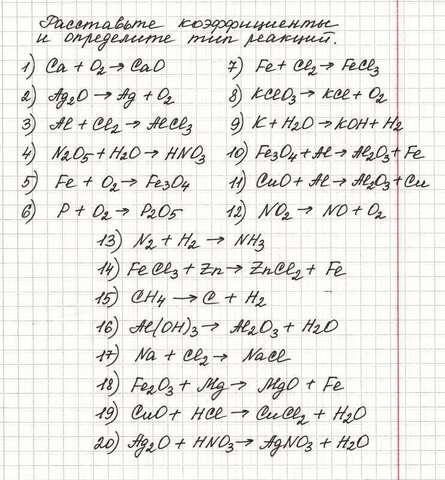 Расставьте коэффициенты
и определите тип реакций.
1) Ca + O₂ → CaO
2) Ag₂O → Ag + O₂
3) Al + Cl₂ → AlCl₃
4) N₂O₅ + H₂O → HNO₃
5) Fe + O₂ → Fe₃O₄
6) P + O₂ → P₂O₅
7) Fe + Cl₂ → FeCl₃
8) KClO₃ → KCl + O₂
9) K + H₂O → KOH + H₂
10) Fe₃O₄ + Al → Al₂O₃ + Fe
11) CuO + Al → Al₂O₃ + Cu
12) NO₂ → NO + O₂
13) N₂ + H₂ → NH₃
14) FeCl₃ + Zn → ZnCl₂ + Fe
15) CH₄ → C + H₂
16) Al(OH)₃ → Al₂O₃ + H₂O
17) Na + Cl₂ → NaCl
18) Fe₂O₃ + Mg → MgO + Fe
19) CuO + HCl → CuCl₂ + H₂O
20) Ag₂O + HNO₃ → AgNO₃ + H₂O